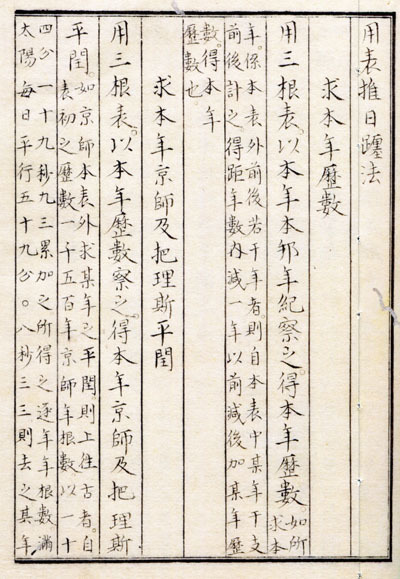 用表推日躔法
求本年歷數
用三根表以本年本邦年紀察之得本年歷數如所
求本
年係本表外前後若干年者則自本表中某年干支
前後計之得距年數內減一年以前減後加某年歷
數得本年
歷數也
求本年京師及把理斯平閏
用三根表以本年歷數察之得本年京師及把理斯
平閏如京師本表外求某年之平閏則上往古者自
表初之歷數一千五百年京師年根數以一十
四分一十九秒九三累加之所得之逐年年根數滿
太陽每日平行五十九分八秒三三則去之其年